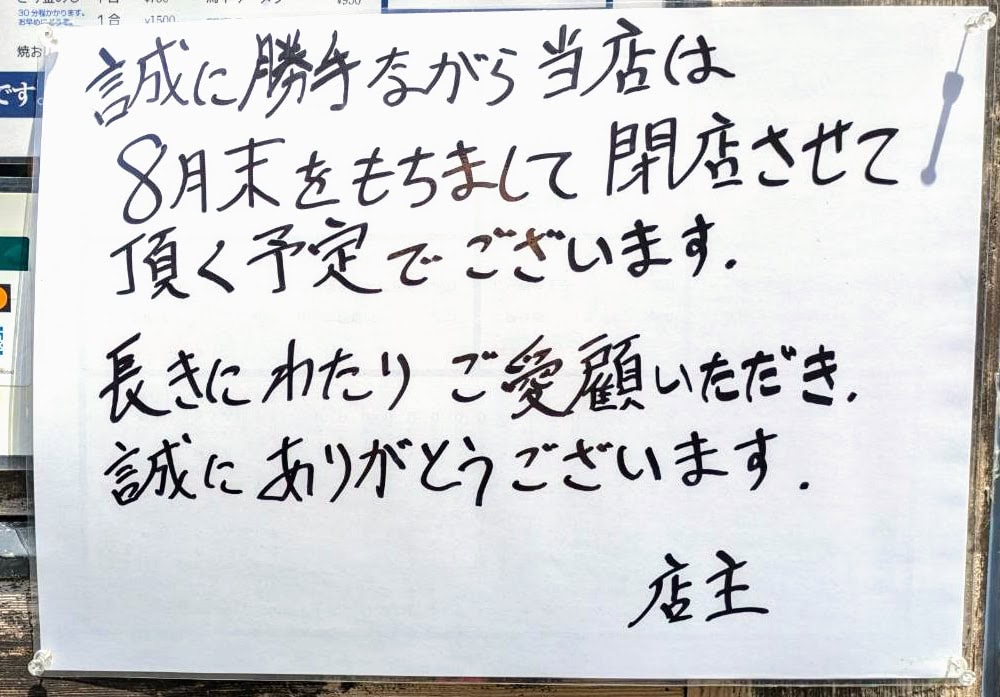 30分程かかります。
お早めにどうぞ。
1合 ¥1500
¥950
焼お
です。
誠に勝手ながら当店は
8月末をもちまして閉店させて
頂く予定でございます.
長きにわたりご愛顧いただき.
誠にありがとうございます.
店主